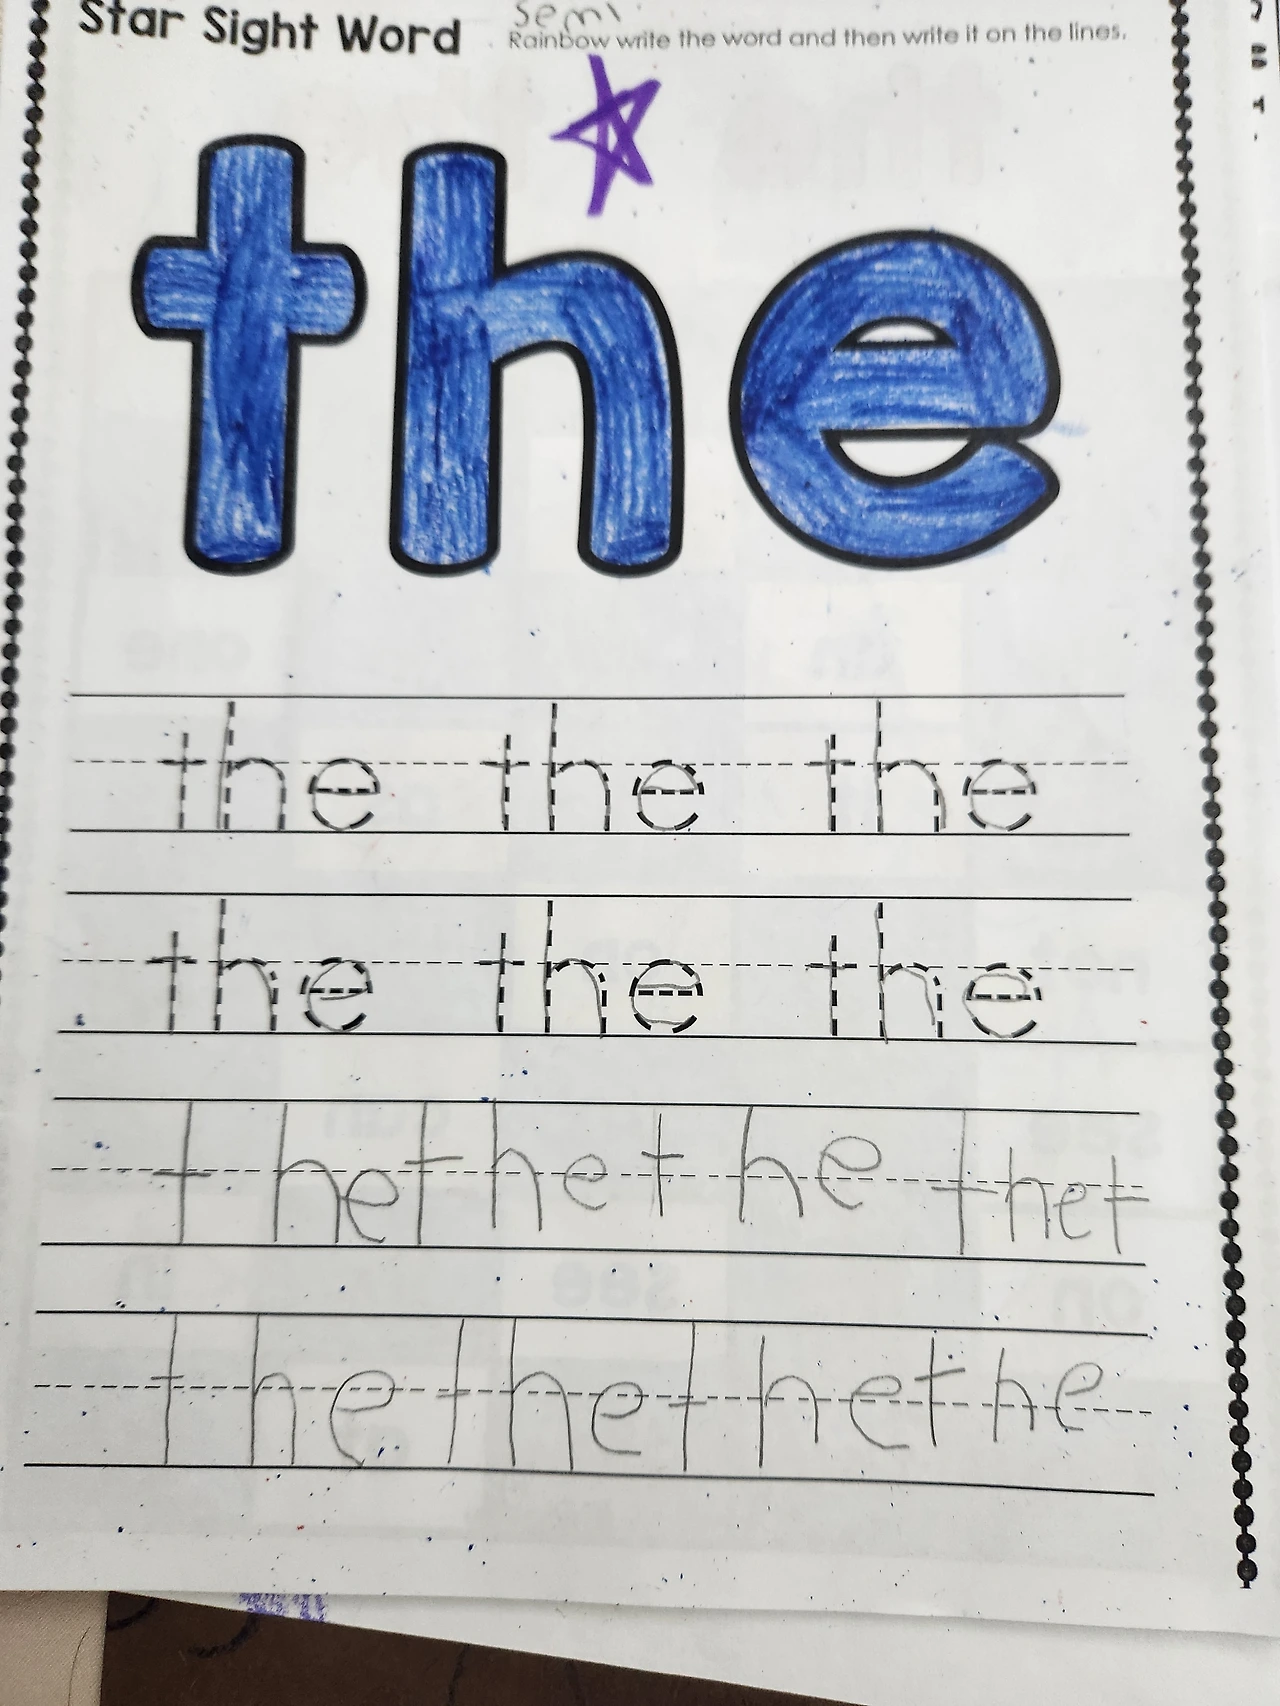 semi
Star Sight Word
Rainbow write the word and then write it on the lines.
the
the the the
the the the
t het he t he thet
the the the the